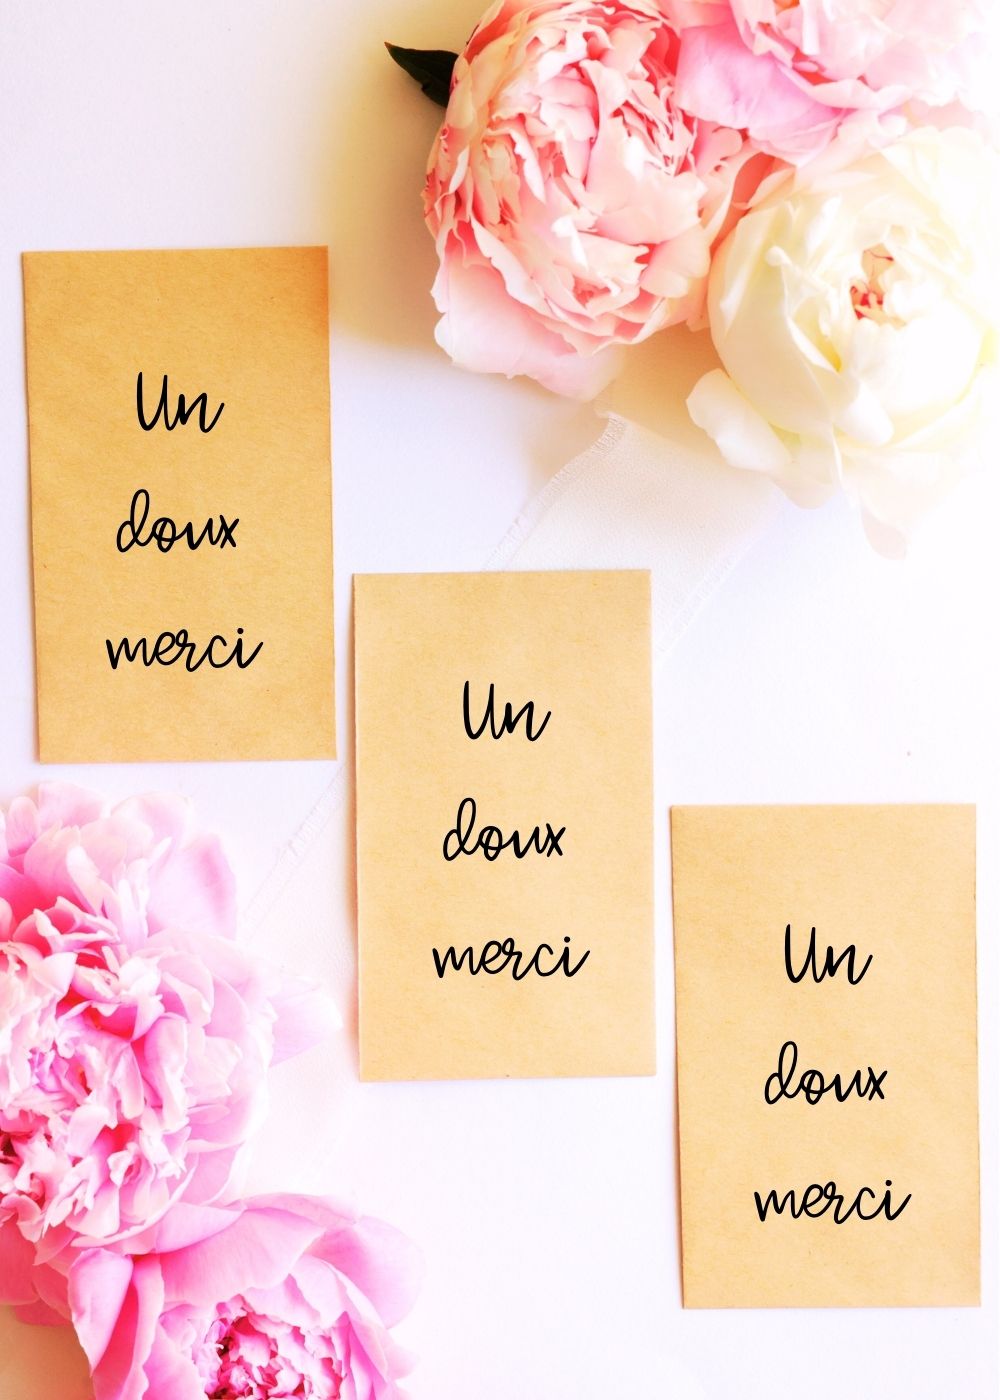 Un
doux
merci
Un
doux
merci
Un
doux
merci